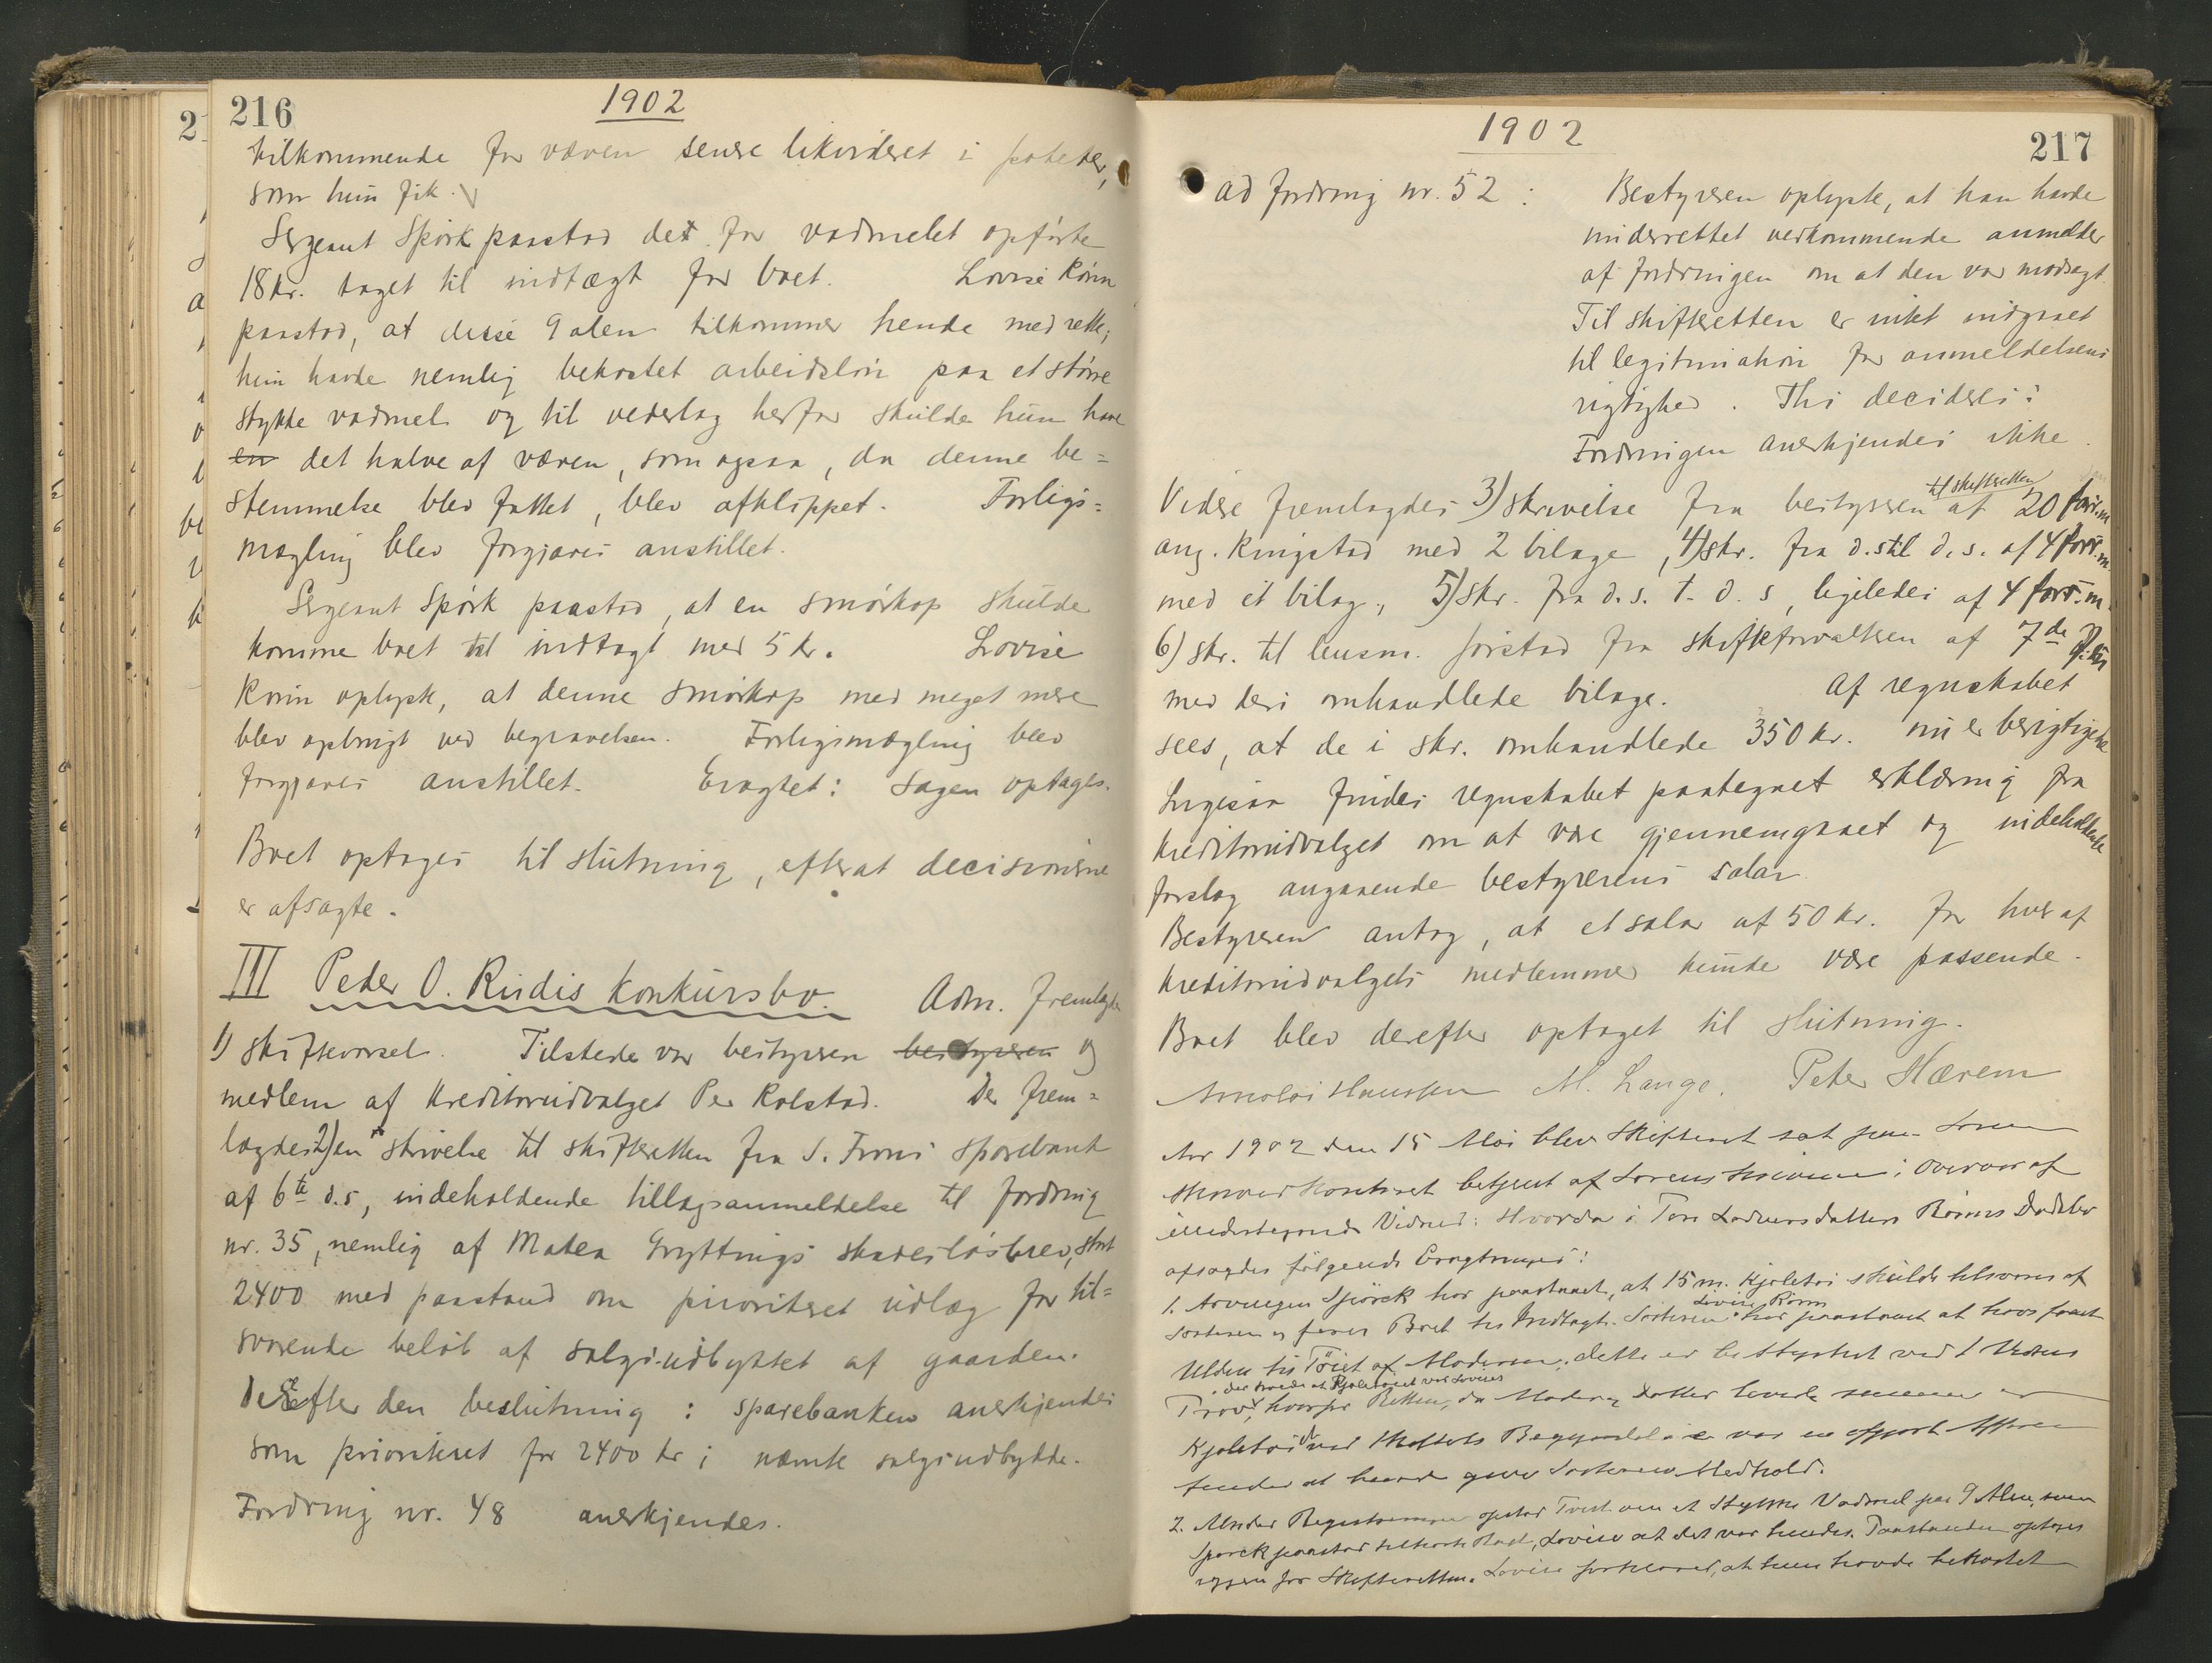 216
1902
tilkommende for væven senere likvideret i poteter,
som hun fik.
Sergeant Spörk paastod det for vadmelet opförte
18 kr. taget til indtægt for boet. Lovise Rönn
paastod, at disse 9 alen tilkommer hende med rette;
hun havde nemlig bekostet arbeidslön paa et större
stykke vadmel og til vederlag herfor skulde hun have
en det halve af væven, som ogsaa, da denne be=
stemmelse blev fattet, blev afklippet. Forligs=
mægling blev forgjæves anstillet.
Sergeant Spörk paastod, at en smörkop skulde
komme boet til indtægt med 5 kr. Lovise
Rönn oplyste, at denne smörkop med meget mere
blev opbrugt ved begravelsen. Forligsmægling blev
forgjæves anstillet. Eragtet: Sagen optages.
Boet optages til slutning, efterat decisionerne
er afsagte.
III Peder O. Rudis konkursbo. Adm. fremlagde
1) skiftevarsel. Tilstede var bestyreren bestyreren og
medlem af kreditorudvalget Per Kolstad. Der frem=
lagdes 2) en skrivelse til skifteretten fra S. Frons sparebank
af 6te d.s, indeholdende tillægsanmeldelse til fordring
nr. 35, nemlig af Matea Gryttings skadeslösbrev, stort
2400 med paastand om prioriteret udlæg for til=
svarende belöb af salgsudbyttet af gaarden.
Derefter den beslutning: sparebanken anerkjendes
som prioriteret for 2400 kr i nævnte salgsudbytte.
Fordring nr. 48 anerkjendes.
1902
217
ad fordring nr. 52: Bestyreren oplyste, at han havde
underrettet vedkommende anmelder
af fordringen om at den var modsagt.
Til skifteretten er intet indgaaet
til legitimation for anmeldelsens
rigtighed. Thi decideres:
Fordringen anerkjendes ikke.
til skifteretten
Videre fremlagdes 3) skrivelse fra bestyreren af 20 forr. m
ang. Ringstad med 2 bilage, 4) skr. fra d.s til d.s. af 4 forr. m.
med et bilag, 5) skr. fra d.s. t. d.s, ligeledes af 4 forr. m.
6) skr. til lensm. Forstad fra skifteforvalteren af 7de
med deri omhandlede bilage. Af regnskabet
sees, at de i skr. omhandlede 350 kr. nu er berigtigede
Ligesaa findes regnskabet paategnet erklæring fra
kreditorudvalget om at være gjennemgaaet og indeholdende
forslag angaaende bestyrerens salær
Bestyreren antog, at et salær af 50 kr. for hver af
kreditorudvalgets medlemmer kunde være passende.
Boet blev derefter optaget til slutning.
Arnoldi Hanssen M. Lange. Peter Hærem
Aar 1902 den 15 Mai blev Skifteret sat paa Soren
skriverkontoret betjent af Sorenskriveren i Overvær af
undertegnede Vidner: Hvorda i Tore Ladversdatters Rönns Dødsbo
afsagdes fölgende Eragtninger:
1. Arvingen Spörck har paastaaet, at 15 m. Kjoletöi skulde tilsvares af
Lovise Rönn
Søsteren og föres Boet til Indtægt. Søsteren har paastaaet at have faaet
Ulden til Töiet af Moderen; dette er bestyrket ved 1 Vidnes
der svarede at Kjoletöiet var Lovises
Prov, hvorfor Retten, da Moder og Datter levede sammen og
Kjoletöiet ved Skiftets Begyndelse var en opgjort Affære
finder at burde give Søsteren Medhold.
2. Under Registreringen opstod Tvist om et Stykke Vadmel paa 9 Alen, som
Spörck paastod tilhørte Boet, Lovise at det var hendes. Paastanden optoges
igjen for Skifteretten. Lovise forklared, at hun havde bekostet